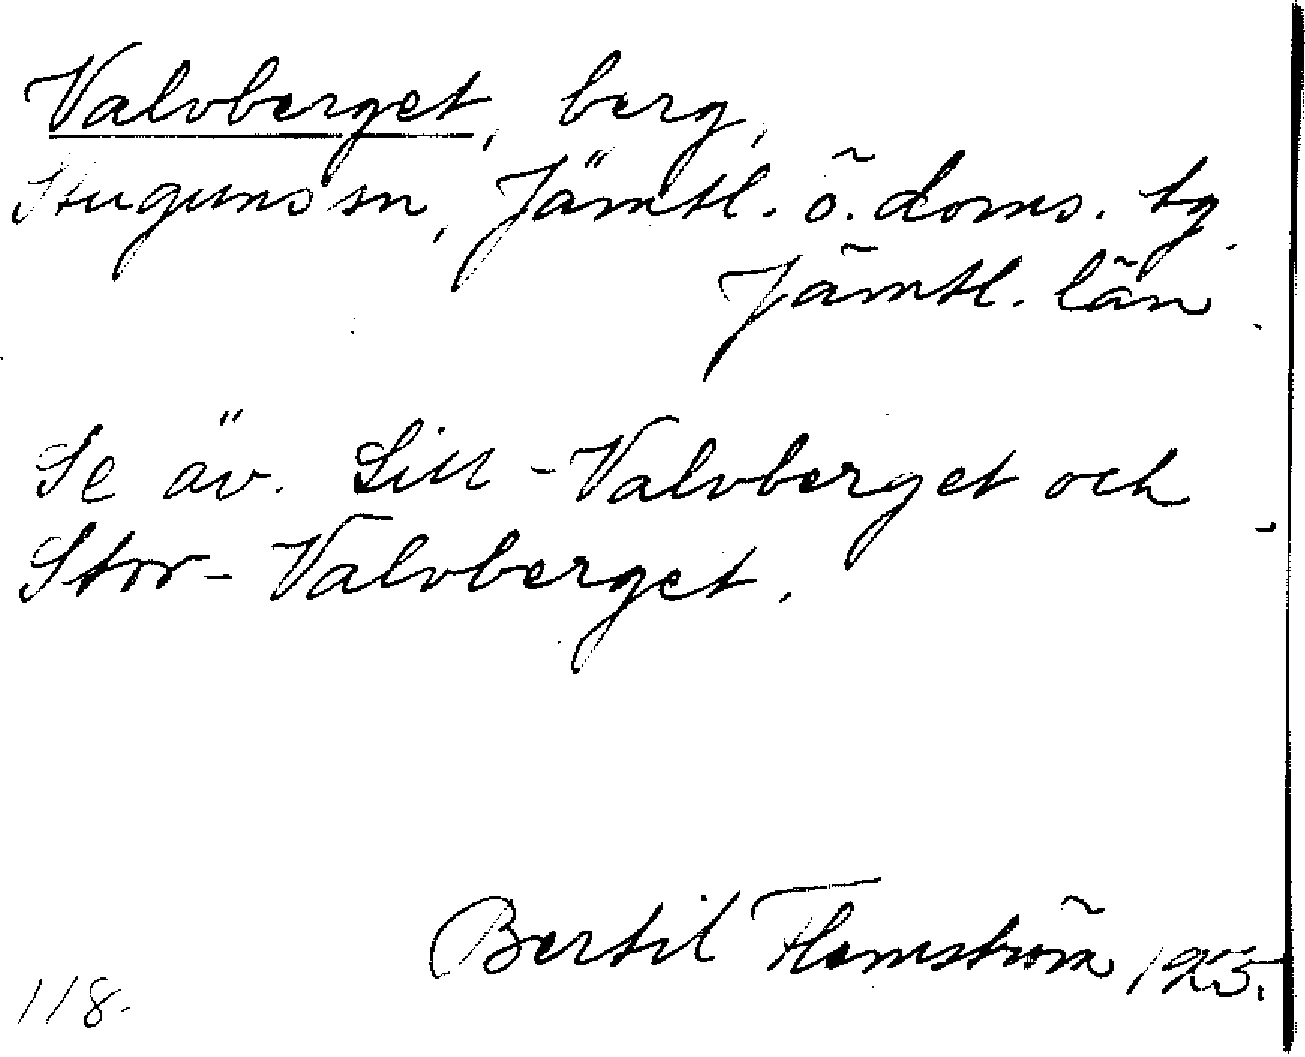 Valvberget, berg,
Stuguns sn, Jämtl. ö. doms. tg.
Jämtl. län.
Se äv. Lill-Valvberget och
Stor-Valvberget.
Bertil Flemström
118.